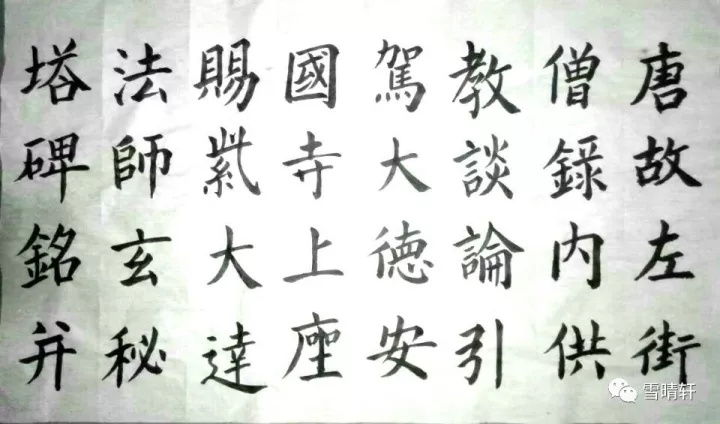 唐故左街
僧錄内供
教談論引
駕大德安
國寺上座
賜紫大達
法師玄秘
塔碑銘并
雪晴轩